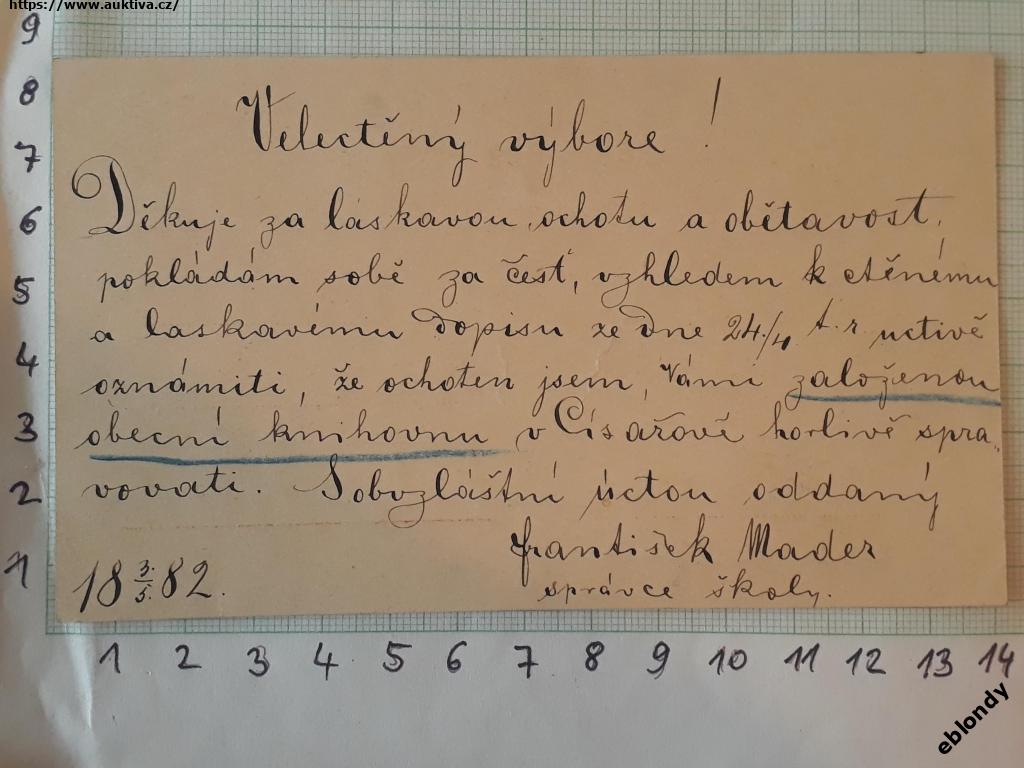 https://www.auktiva.cz/
Velectěný výbore!
Děkuje za láskavou ochotu a obětavost,
pokládám sobě za česť, vzhledem k ctěnému
a laskavému dopisu ze dne 24./4 t. r. uctivě
oznámiti, že ochoten jsem, Vámi založenou
obecní knihovnu v Císařově horlivě spra-
vovati. S obvzláštní úctou oddaný
František Mader
správce školy.
18 3./5. 82.
9
8
7
6
5
4
3
2
1
1 2 3 4 5 6 7 8 9 10 11 12 13 14
eblondy